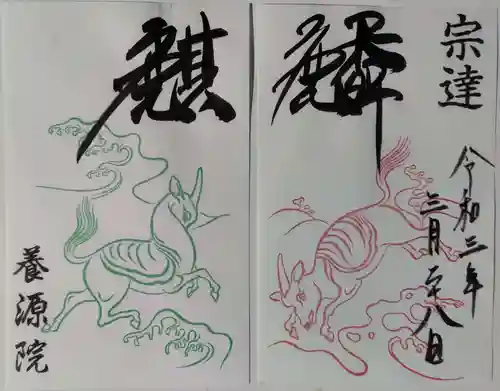 麒
養源院
麟
宗達
令和三年
三月二十八日